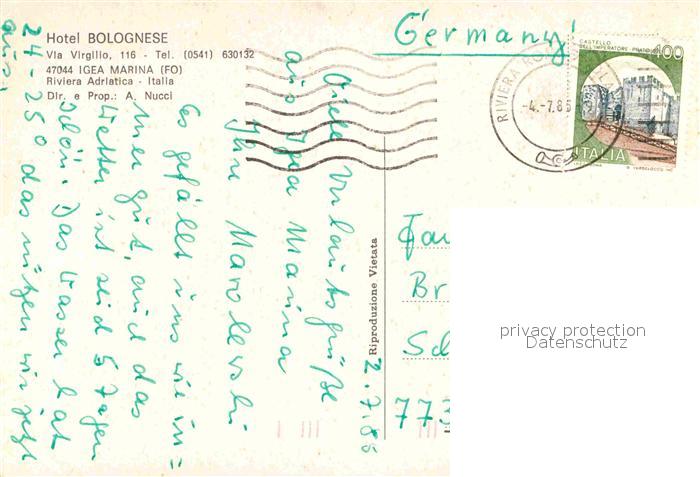 Hotel BOLOGNESE
Via Virgilio, 116 - Tel. (0541) 630132
47044 IGEA MARINA (FO)
Riviera Adriatica - Italia
Dir. e Prop.: A. Nucci
Germany
CASTELLO
DELL'IMPERATORE - PRATO
400
ITALIA
RIVIERA
-4.-7.85
2.7.85
Viele Urlaubsgrüße
aus Igea Marina
Ihre
Es gefällt uns wie im=
mer gut, auch das
Wetter ist seid 5 Tagen
schön. Das Wasser hat
24-25° das nützen wir jetzt
aus.
Riproduzione Vietata
Fa
Br
Sc
773
privacy protection
Datenschutz